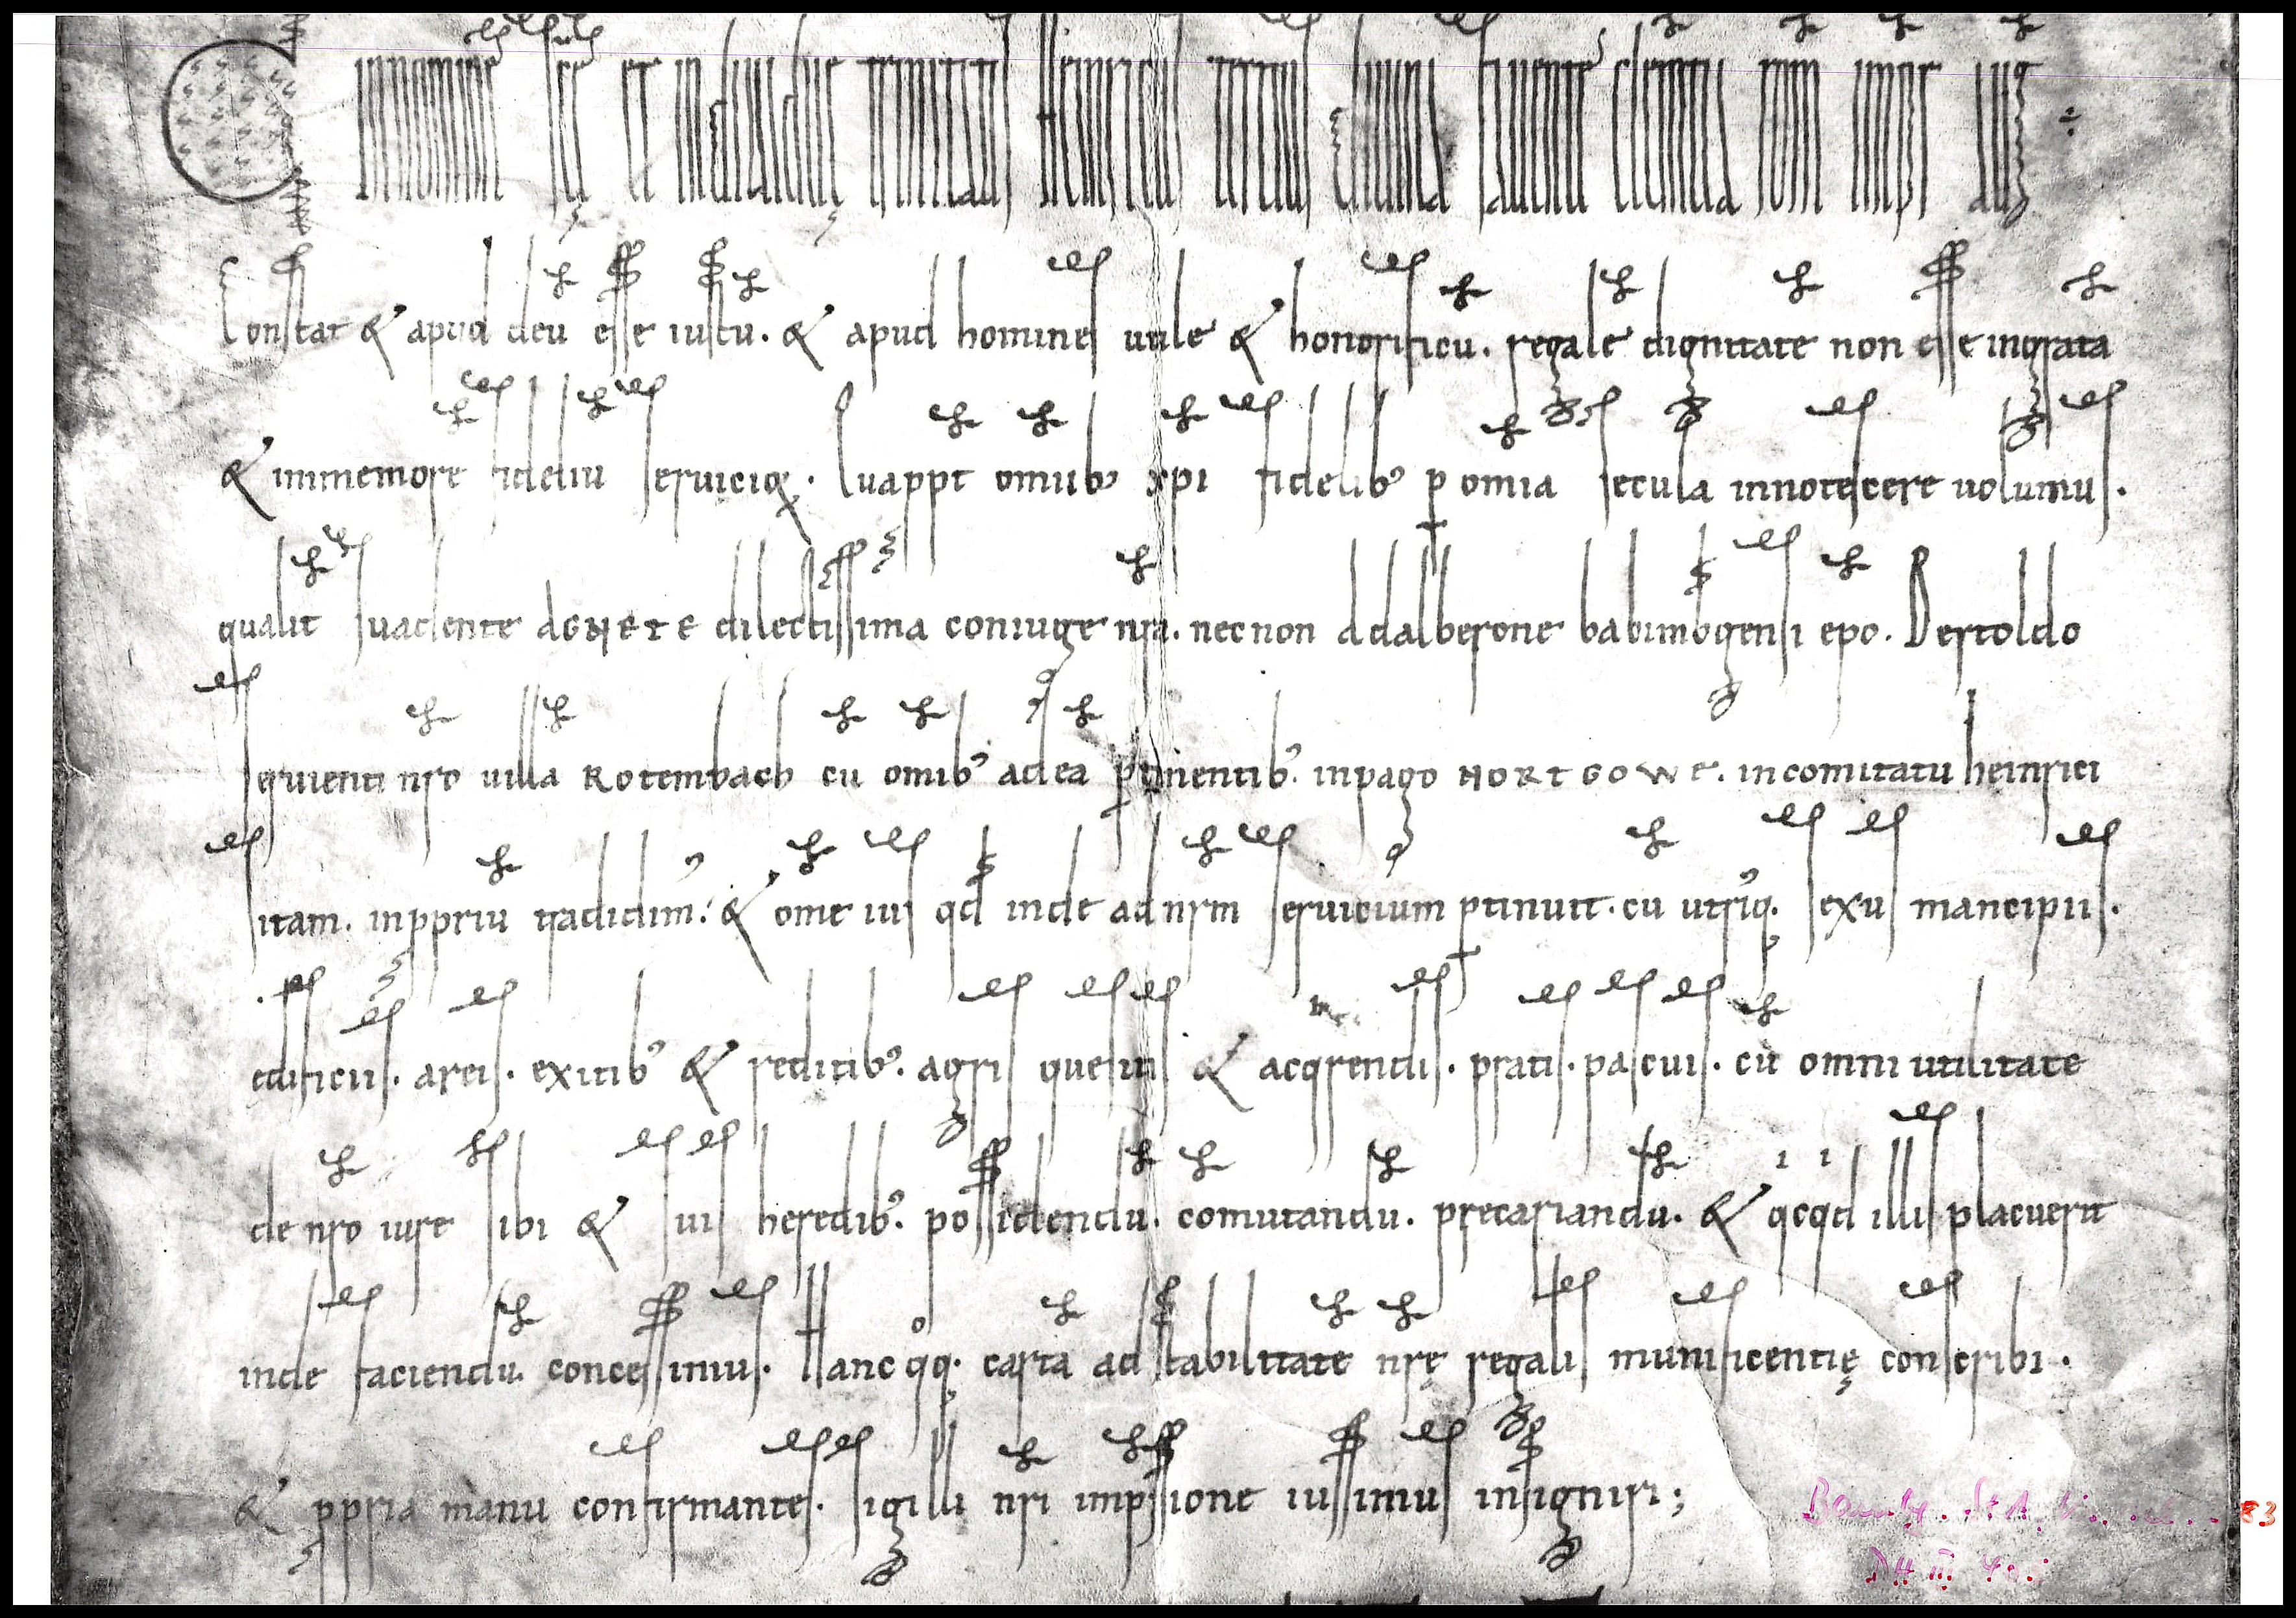 In nomine sc̄ę et indiuiduę trinitatis Heinricus tertius diuina fauente clementia rom̄ imp̄r auḡ
Constat & apud deū esse iustū. & apud homines utile & honorificū. regalē dignitatē non esse ingratā
& inmemorē fideliū seruiciq;. Quapp̄t om̄ib' xp̄i fidelib' p om̄ia secula innotescere uolumus.
qualit̄ suadente AGNETE dilectissima coniuge nr̄a. necnon Adalberone babinb̄gensi ep̄o. Bertoldo
seruienti nr̄o uillā Rotembach cū om̄ib' ad eā ptinentib'. in pago NORTGOWE. in comitatu heinrici
sitam. in ppriū tradidim'. & om̄e ius qd̄ inde ad nr̄m seruicium ptinuit. cū utriq;. sexus mancipiis.
edificiis. areis. exitib' & reditib'. agris quesitis & acqrendis. pratis. pascuis. cū omni utilitate
de nr̄o iure sibi & suis heredib'. possidendū. cōmutandū. precariandū. & qcqd illis placuerit
inde faciendū concessimus. Hanc qq;. cartā ad stabilitatē nr̄ę regalis munificentię conscribi.
& ppria manu confirmantes. sigilli nr̄i imp̄ssione iussimus insigniri;